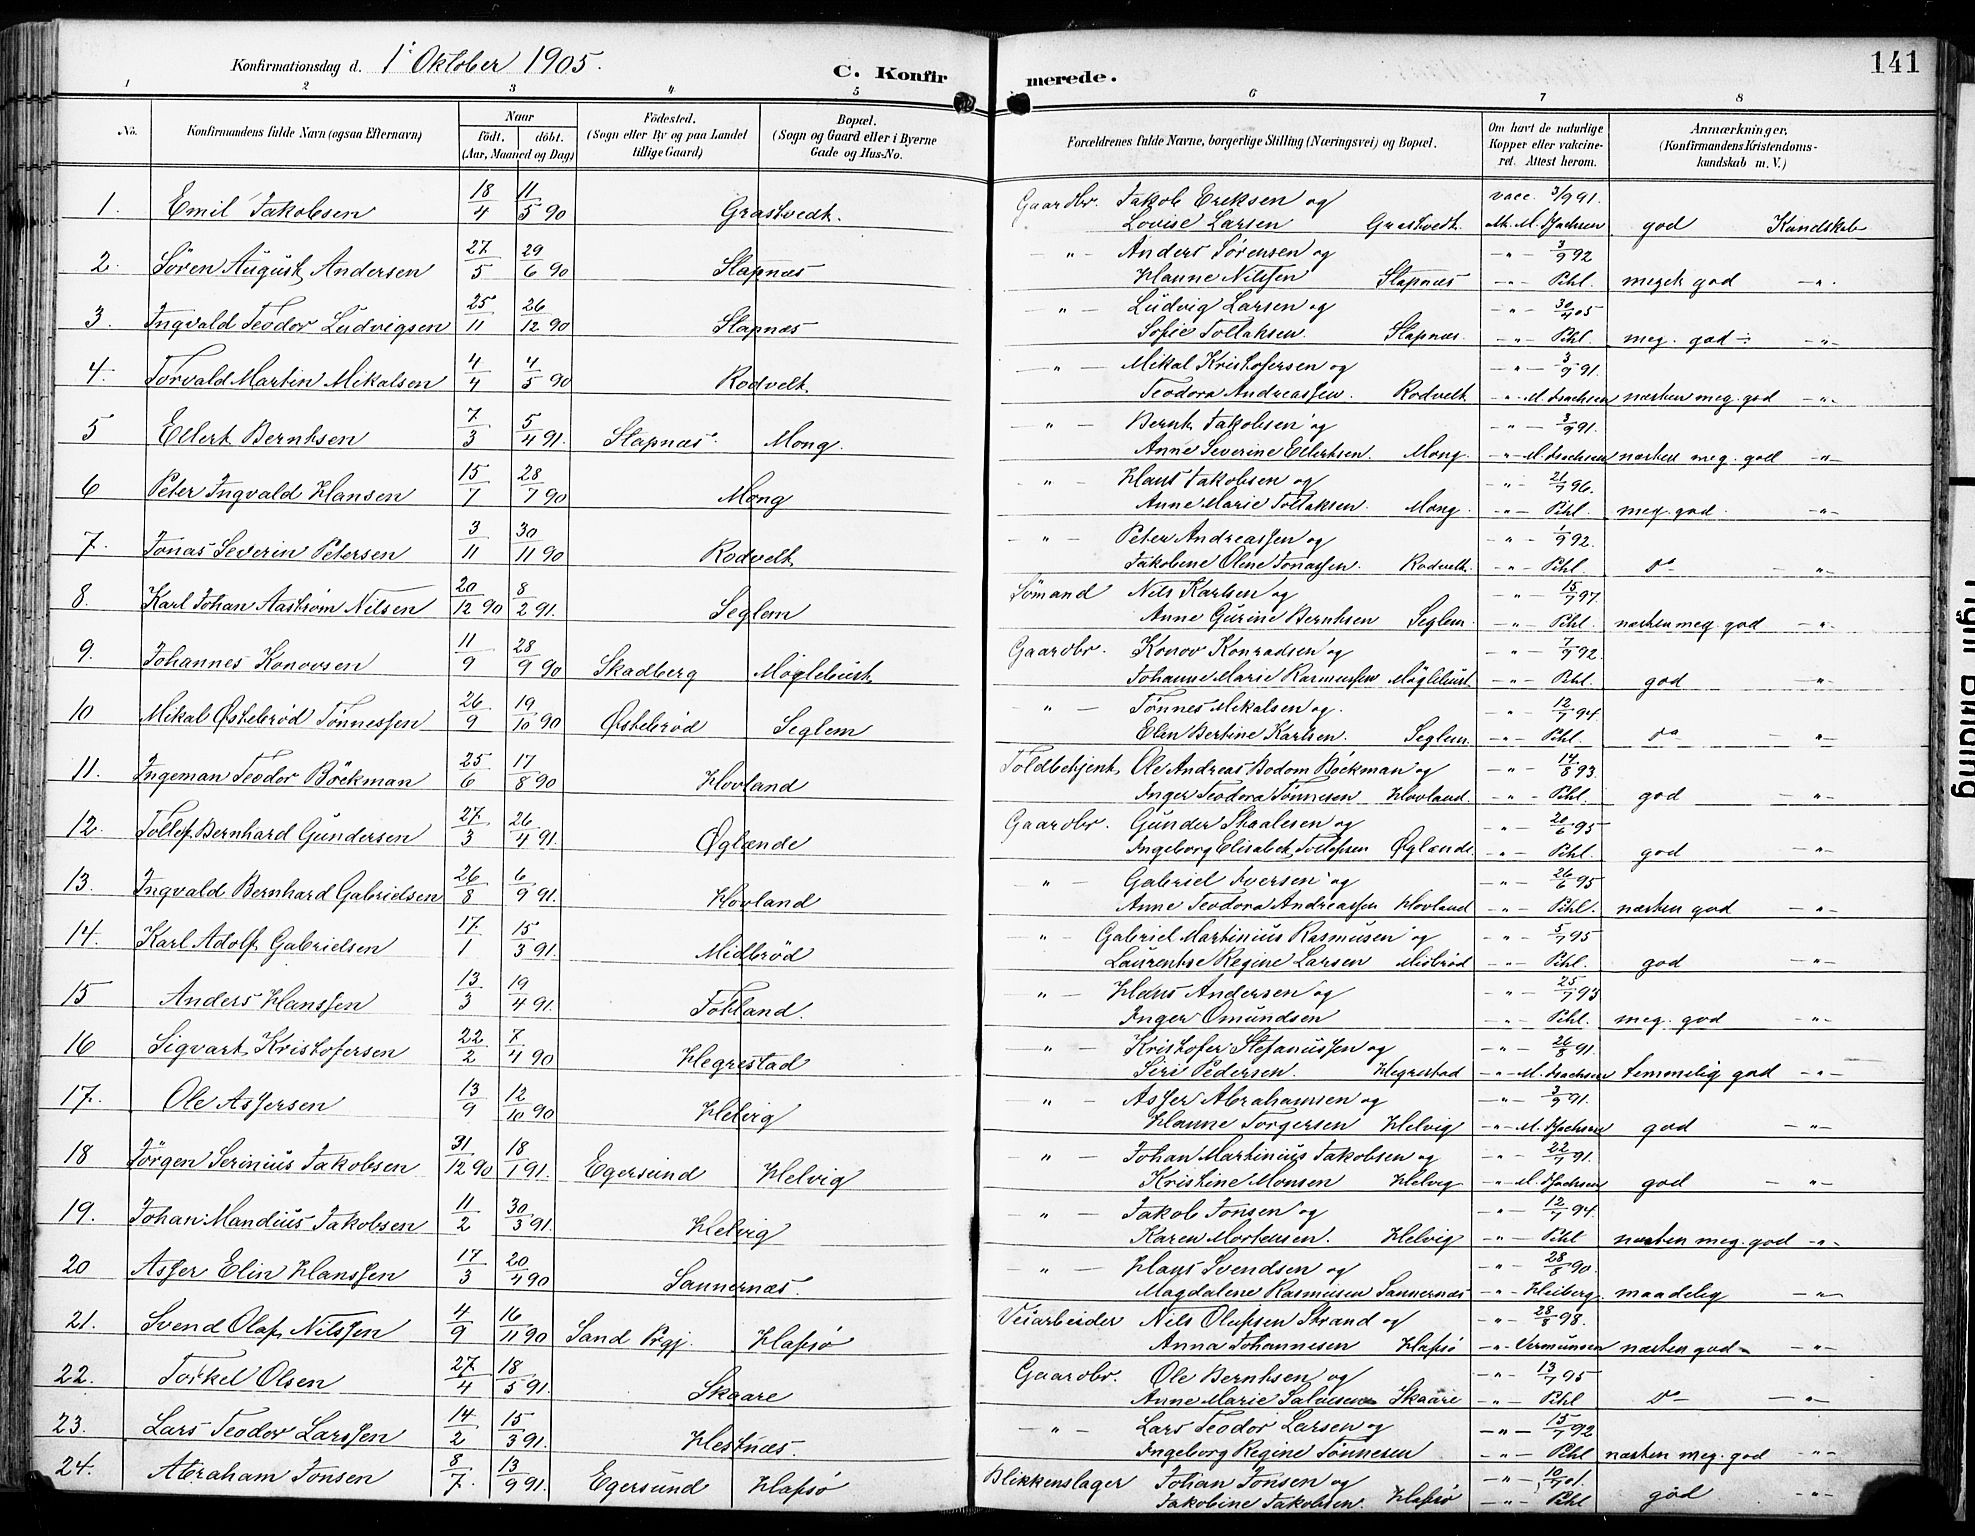 141
Konfirmationsdag d. 1ˢ Oktober 1905.
C. Konfirmerede.
1 2 3 4 5 6 7 8
No.
Konfirmandens fulde Navn (ogsaa Efternavn)
Naar
födt. döbt.
(Aar, Maaned og Dag)
Födested.
(Sogn eller By og paa Landet
tillige Gaard)
Bopæl.
(Sogn og Gaard eller i Byerne
Gade og Hus-No.
Forældrenes fulde Navne, borgerlige Stilling (Næringsvei) og Bopæl.
Om havt de naturlige
Kopper eller vakcine-
ret. Attest herom.
Anmærkninger,
(Konfirmandens Kristendoms-
kundskab m. V.)
1. Emil Jakobsen 18/4 11/5 90 Grastvedt. Gaardbr. Jakob Eriksen og vacc. 3/9 91.
Lovise Larsen Grastvedt. M. Isachsen god Kundskab
2. Sören August Andersen 27/5 29/6 90 Stapnæs " Anders Sørensen og " 3/9 92
Hanne Nilssen Stapnæs " Pihl. meget god "
3. Ingvald Teodor Ludvigsen 25/11 26/12 90 Stapnæs " Ludvig Larsen og " 30/9 05
Sofie Tollaksen. Stapnæs. " Pihl. meg. god "
4. Torvald Martin Mikalsen 4/4 4/5 90 Rodvelt " Mikal Kristofersen og " 3/9 91.
Teodora Andreassen. Rodvelt " M. Isachsen næsten meg. god "
5 Ellert Berntsen 7/3 5/4 91. Stapnæs. Mong. " Bernt Jakobsen og " 3/9 91.
Anne Severine Ellertsen. Mong. " M. Isachsen næsten meg. god "
6 Peter Ingvald Hansen 15/7 28/7 90 Mong " Hans Jakobsen og " 21/7 96.
Anne Marie Tollaksen. Mong. " Pihl. meg. god. "
7. Jonas Severin Petersen 3/11 30/11 90 Rodvelt " Peter Andreassen og " 1/9 92.
Jakobine Oline Jonassen. Rodvelt. " Pihl. Do "
8. Karl Johan Aastrøm Nilsen 20/12 90 8/2 91. Seglem Sømand Nils Karlsen og " 15/7 97.
Anne Gurine Berntsen Seglem. " Pihl. næsten meg. god "
9. Johannes Konovsen 11/9 28/9 90 Skadberg Møglebust Gaardbr. Konov Konradsen og " 7/9 92.
Johanne Marie Rasmussen Møglebust " Pihl. god "
10 Mikal Østebrød Tønnessen 26/9 19/10 90 Østebrød Seglem " Tønnes Mikalsen og. " 12/7 94.
Elin Bertine Karlsen. Seglem. " Pihl. Do "
11. Ingeman Teodor Böckman 25/6 17/8 90 Hovland Toldbetjent Ole Andreas Bodom Böckman og " 14/8 93.
Inger Teodora Tønnesen Hovland. " Pihl. god "
12. Tollef Bernhard Gundersen 27/3 26/4 91. Øglænde Gaardbr. Gunder Skaalesen og " 20/6 95
Ingeborg Elisabet Tollefsen Øglænde. " Pihl. god "
13. Ingvald Bernhard Gabrielsen 26/8 6/9 91. Hovland " Gabriel Iversen og " 26/6 95
Anne Teodora Andreassen Hovland " Pihl. næsten god "
14. Karl Adolf Gabrielsen 17/1 15/3 91. Midbrød " Gabriel Martinius Rasmusen og " 5/7 95
Laurentse Regine Larsen Midbrød " Pihl. god "
15 Anders Hanssen 13/3 19/4 91. Totland. " Hans Andersen og " 25/7 93
Inger Omundsen " Pihl. meg. god "
16 Sigvart Kristofersen 22/2 7/4 90 Hegrestad " Kristofer Stefanussen og " 26/8 91.
Siri Pedersen. Hegrestad " M. Isachsen temmelig god "
17. Ole Assersen 13/9 12/10 90 Helvig " Asser Abrahamsen og " 3/9 91.
Hanne Torgersen Helvig " M. Isachsen god "
18 Jörgen Serinius Jakobsen 31/12 90 18/1 91. Egersund Helvig " Johan Martinius Jakobsen og " 22/7 91.
Kristine Monsen Helvig " M. Isachsen god "
19. Johan Mandius Jakobsen 11/2 30/3 91. Helvig " Jakob Jonsen og " 12/7 94.
Karen Mortensen. Helvig " Pihl næsten meg. god "
20 Asser Elin Hanssen 17/3 20/4 90 Sannernæs. " Hans Svendsen og " 28/8 90.
Magdalene Rasmusen Sannernæs " Heiberg maadelig "
21. Svend Olaf Nilssen 4/9 16/11 90 Sand Prgj. Hafsø Veiarbeider Nils Olufsen Strand og " 28/8 98.
Anna Johannesen Hafsø " Vermunsen næsten god "
22. Torkel Olsen 27/4 18/5 91. Skaare Gaardbr. Ole Berntsen og " 13/7 95
Anne Marie Salvesen Skaare " Pihl Do "
23. Lars Teodor Larssen 14/2 15/3 91. Hestnæs. " Lars Teodor Larsen og " 15/7 92
Ingeborg Regine Tönnesen " Pihl næsten meg. god "
24. Abraham Jonsen 8/7. 13/9 91. Egersund Hafsø Blikkenslager Johan Jonsen og " 10/9 01.
Jakobine Jakobsen. Hafsø " Pihl god "